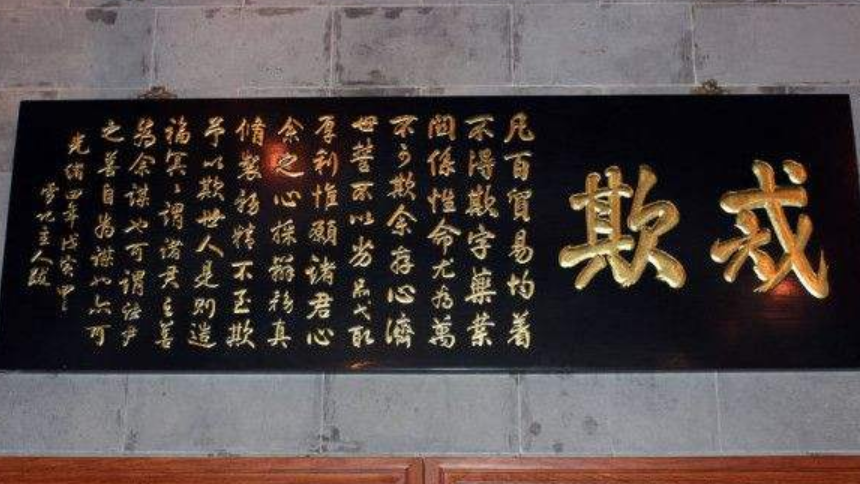 戒欺
凡百貿易均着
不得欺字藥業
関係性命尤為萬
不可欺余存心濟
世誓不以劣品弋取
厚利惟願諸君心
余之心採辦務真
脩製務精不至欺
予以欺世人是則造
福冥〻謂諸君之善
為余謀也可謂諸君
之善自為謀也亦可
光緒四年戊寅
雪記主人跋